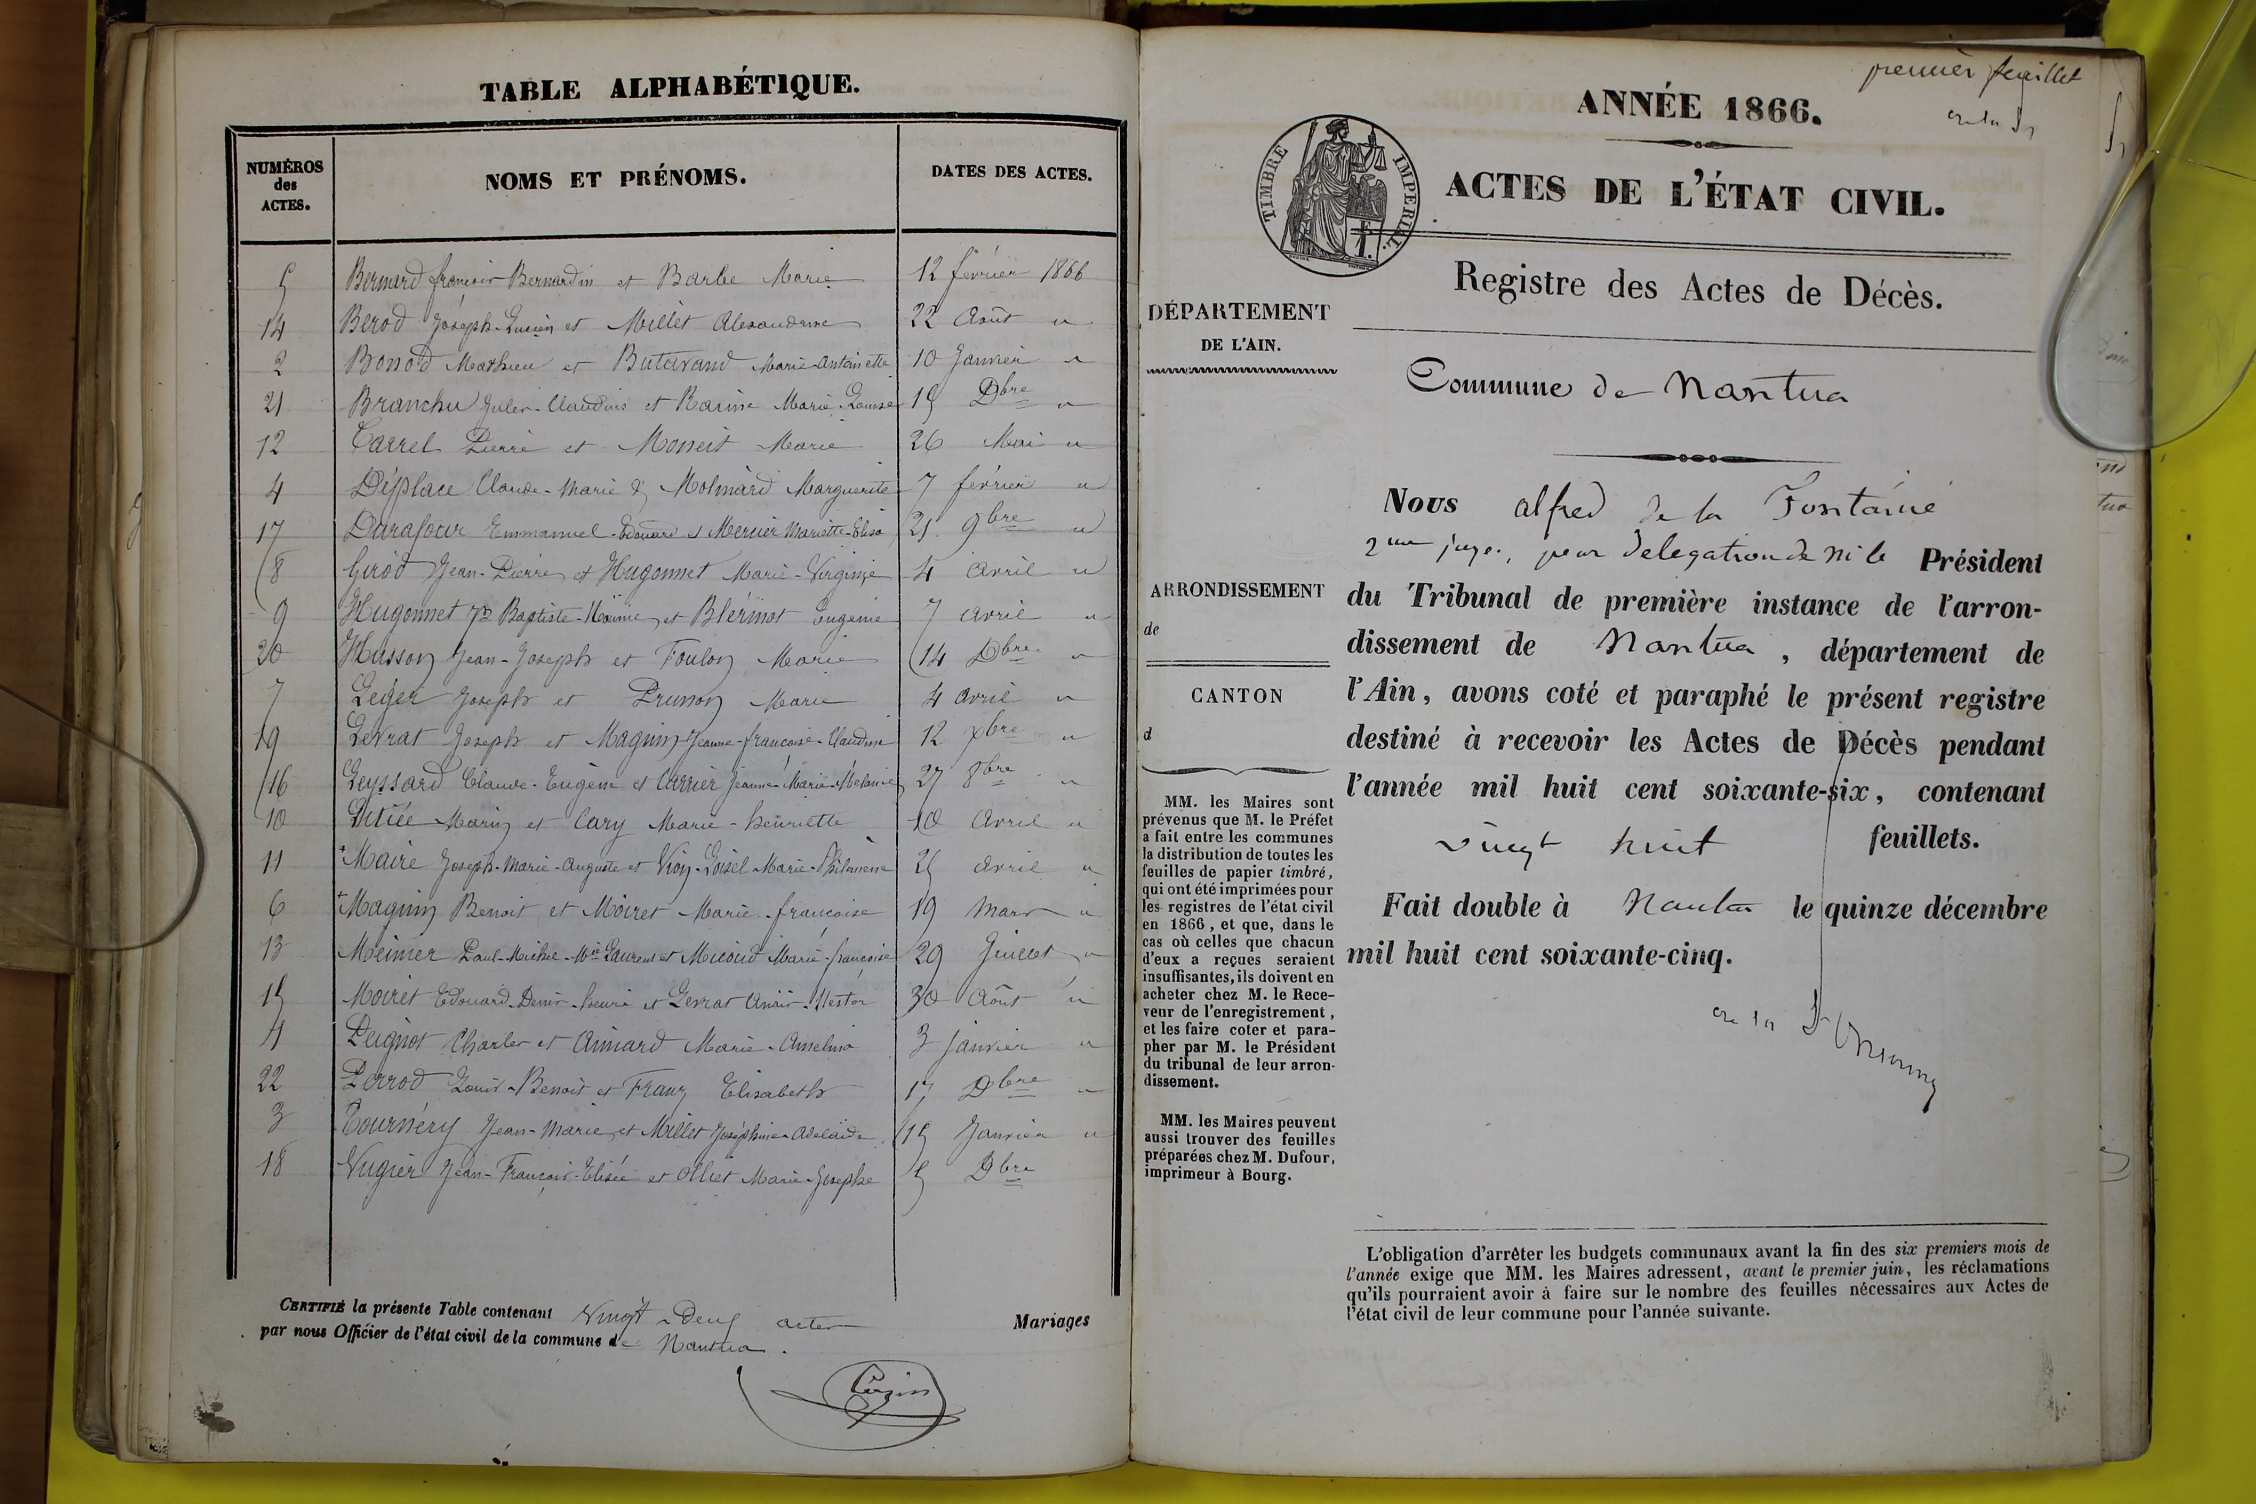 TABLE ALPHABÉTIQUE.
NUMÉROS des ACTES. NOMS ET PRÉNOMS. DATES DES ACTES.
5 Bernard françois Bernardin et Barbe Marie 12 février 1866
14 Berod Joseph-Lucien et Millet Alexandrine 22 Août "
2 Bonod Mathieu et Butavand Marie-Antoinette 10 Janvier "
21 Branchu Jules-Claudius et Ravine Marie-Louise 15 Dbre "
12 Carrel Pierre et Marie 26 Mai "
4 Déplace Claude-Marie & Molinard Marguerite 7 février "
17 Durafour Emmanuel-Edouard et Mercier Mariette-Elisa 21 9bre "
8 Girod Jean-Pierre et Hugonnet Marie-Virginie 4 Avril "
9 Hugonnet Jn Baptiste et Blérinot Eugénie 7 avril "
20 Husson Jean-Joseph et Foulon Marie 14 Dbre "
7 Leger Joseph et Prunon Marie 4 avril "
19 Levrat Joseph et Magnin Jeanne-françoise-Claudine 12 xbre "
16 Leyssard Claude-Eugène et Carrier Jeanne-Marie-Melanie 27 8bre "
10 Marin et Cary Marie-henriette 10 Avril "
11 Maire Joseph-Marie-Auguste et Vion-Loisel Marie-Philomène 25 avril "
6 Magnin Benoit et Moiret Marie-françoise 19 Mars "
13 Meinier Paul-Michel-Mie Laurent et Micoud Marie-françoise 29 Juillet "
15 Moiret Edouard-Denis-henri et Levrat Anaïs-Nestor 30 Août "
1 Peignot Charles et Aimard Marie-Anselma 3 janvier "
22 Perrod Louis-Benoit et Franz Elisabeth 17 Dbre "
3 Tournéry Jean-Marie et Millet Joséphine-Adelaïde 15 Janvier "
18 Vugier Jean-François-Elisée et Olliet Marie-Josephe 5 Dbre
CERTIFIÉ la présente Table contenant Vingt-Deux actes Mariages
par nous Officier de l'état civil de la commune de Nantua.
premier feuillet
ANNÉE 1866.
TIMBRE IMPÉRIAL.
ACTES DE L'ÉTAT CIVIL.
Registre des Actes de Décès.
DÉPARTEMENT
DE L'AIN.
Commune de Nantua
Nous alfred de la Fontaine
2me juge, par délégation de Mr le Président
du Tribunal de première instance de l'arron-
dissement de Nantua, département de
l'Ain, avons coté et paraphé le présent registre
destiné à recevoir les Actes de Décès pendant
l'année mil huit cent soixante-six, contenant
vingt huit feuillets.
Fait double à Nantua le quinze décembre
mil huit cent soixante-cinq.
ARRONDISSEMENT
de
CANTON
d
MM. les Maires sont
prévenus que M. le Préfet
a fait entre les communes
la distribution de toutes les
feuilles de papier timbré,
qui ont été imprimées pour
les registres de l'état civil
en 1866, et que, dans le
cas où celles que chacun
d'eux a reçues seraient
insuffisantes, ils doivent en
acheter chez M. le Rece-
veur de l'enregistrement,
et les faire coter et para-
pher par M. le Président
du tribunal de leur arron-
dissement.
MM. les Maires peuvent
aussi trouver des feuilles
préparées chez M. Dufour,
imprimeur à Bourg.
L'obligation d'arrêter les budgets communaux avant la fin des six premiers mois de
l'année exige que MM. les Maires adressent, avant le premier juin, les réclamations
qu'ils pourraient avoir à faire sur le nombre des feuilles nécessaires aux Actes de
l'état civil de leur commune pour l'année suivante.